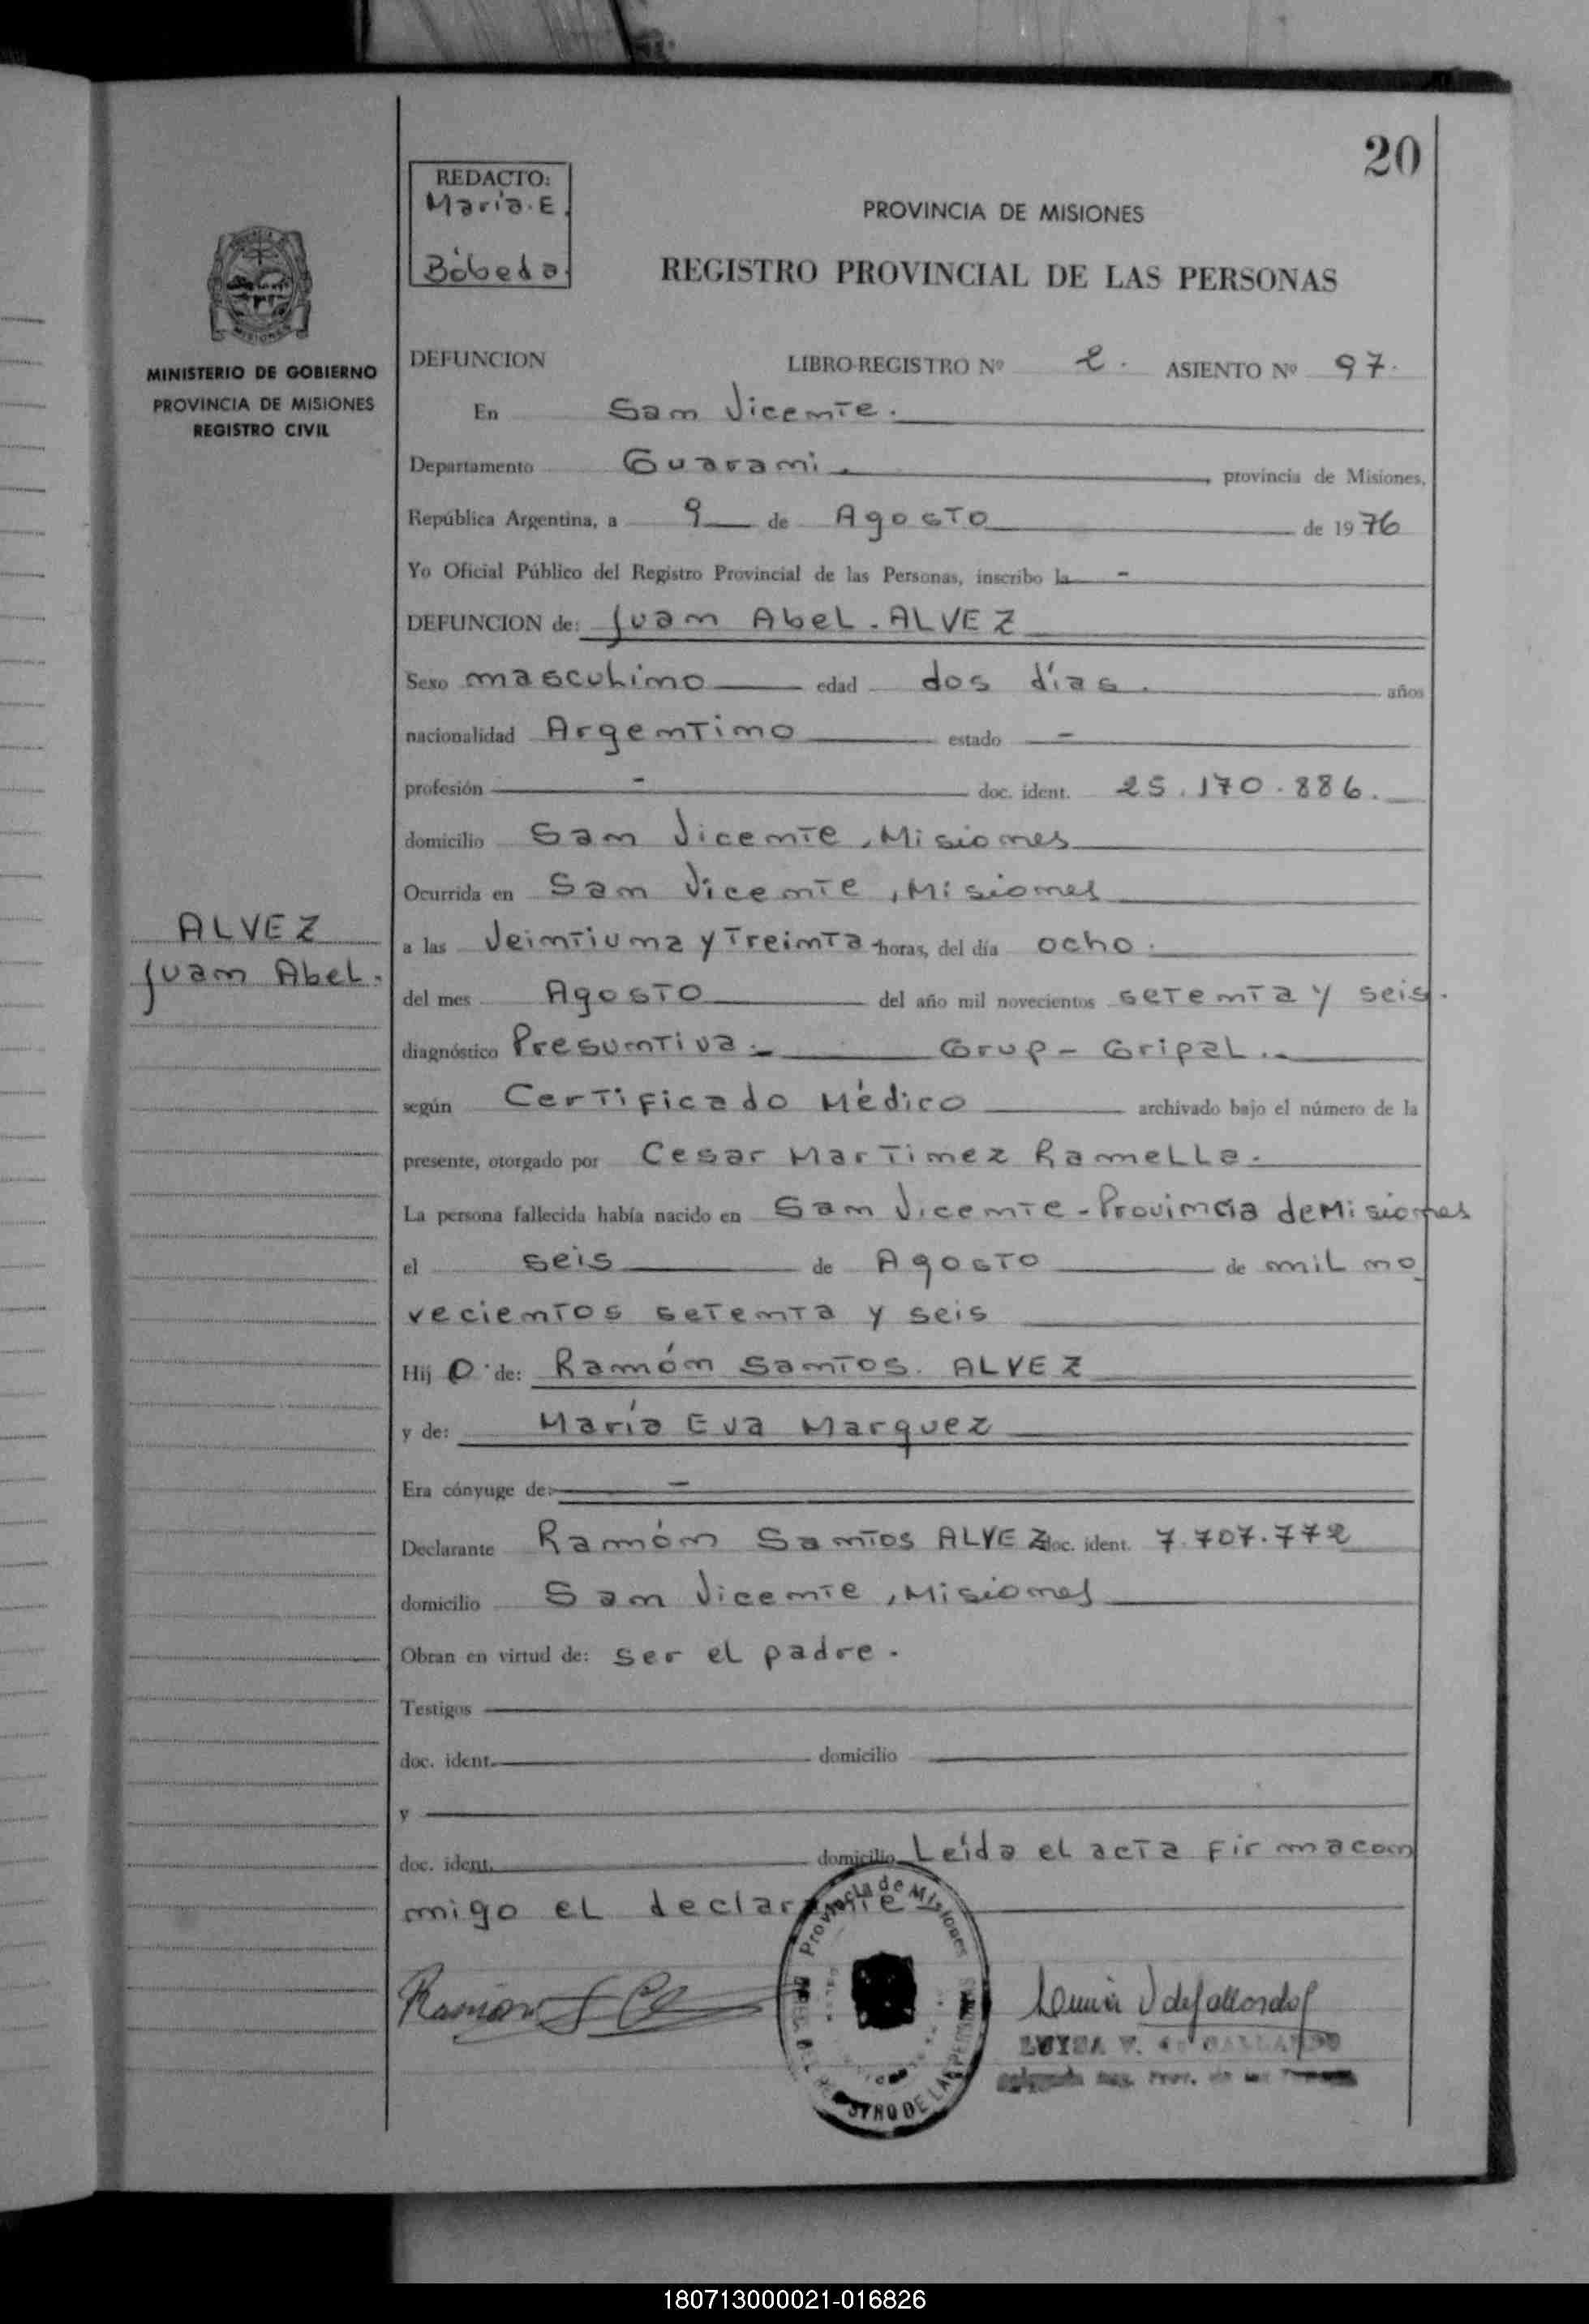 20
REDACTO:
María. E.
Bóbeda.
PROVINCIA DE MISIONES
REGISTRO PROVINCIAL DE LAS PERSONAS
MINISTERIO DE GOBIERNO
PROVINCIA DE MISIONES
REGISTRO CIVIL
DEFUNCION LIBRO-REGISTRO Nº 2. ASIENTO Nº 97.
En San Vicente.
Departamento Guarani. , provincia de Misiones,
República Argentina, a 9 de Agosto de 1976
Yo Oficial Público del Registro Provincial de las Personas, inscribo la -
DEFUNCION de: Juan Abel. ALVEZ
Sexo masculino edad dos días. años
nacionalidad Argentino estado -
profesión - doc. ident. 25.170.886.
domicilio San Vicente, Misiones
Ocurrida en San Vicente, Misiones
ALVEZ
Juan Abel.
a las Veintiuna y Treinta horas, del día ocho.
del mes Agosto del año mil novecientos setenta y seis.
diagnóstico Presuntiva. Grup - Gripal..
según Certificado Médico archivado bajo el número de la
presente, otorgado por Cesar Martinez Ramella.
La persona fallecida había nacido en San Vicente - Provincia de Misiones
el seis de Agosto de mil no
vecientos setenta y seis
Hij o de: Ramón Santos. ALVEZ
y de: María Eva Marquez
Era cónyuge de: -
Declarante Ramón Santos ALVEZ doc. ident. 7.707.772
domicilio San Vicente, Misiones
Obran en virtud de: ser el padre.
Testigos
doc. ident. domicilio
y
doc. ident. domicilio Leída el acta firma con
migo el declarante
Provincia de Misiones
Ramon S
LUISA V. de GALLARDO
180713000021-016826